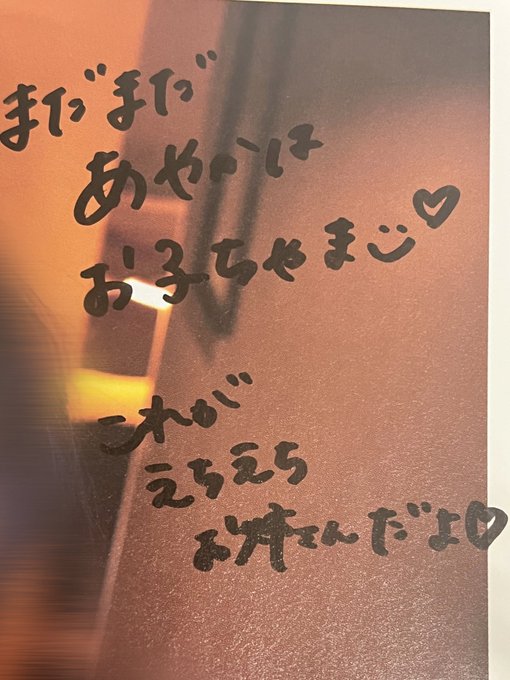 まだまだ
あやかは
お子ちゃま♡
これが
えちえち
お姉さんだよ♡